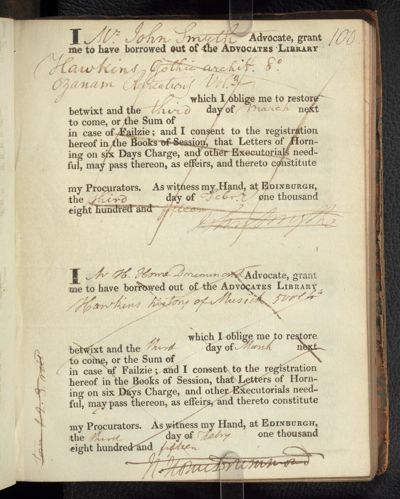 100
I Mr. John Smyth Advocate, grant
me to have borrowed out of the ADVOCATES LIBRARY
Hawkins Gothic archit. 8o
Ozanam Recreations Vol. 3
which I oblige me to restore
betwixt and the third day of March next
to come, or the Sum of
in case of Failzie; and I consent to the registration
hereof in the Books of Session, that Letters of Horn-
ing on six Days Charge, and other Executorials need-
ful, may pass thereon, as effeirs, and thereto constitute
my Procurators. As witness my Hand, at EDINBURGH,
the third day of Febry one thousand
eight hundred and fifteen
John Smyth
I Mr H. Home Drummond Advocate, grant
me to have borrowed out of the ADVOCATES LIBRARY
Hawkins history of Musick 5 vol 4o
which I oblige me to restore
betwixt and the third day of March next
to come, or the Sum of
in case of Failzie; and I consent to the registration
hereof in the Books of Session, that Letters of Horn-
ing on six Days Charge, and other Executorials need-
ful, may pass thereon, as effeirs, and thereto constitute
my Procurators. As witness my Hand, at EDINBURGH,
the third day of Febry one thousand
eight hundred and fifteen
H. Home Drummond